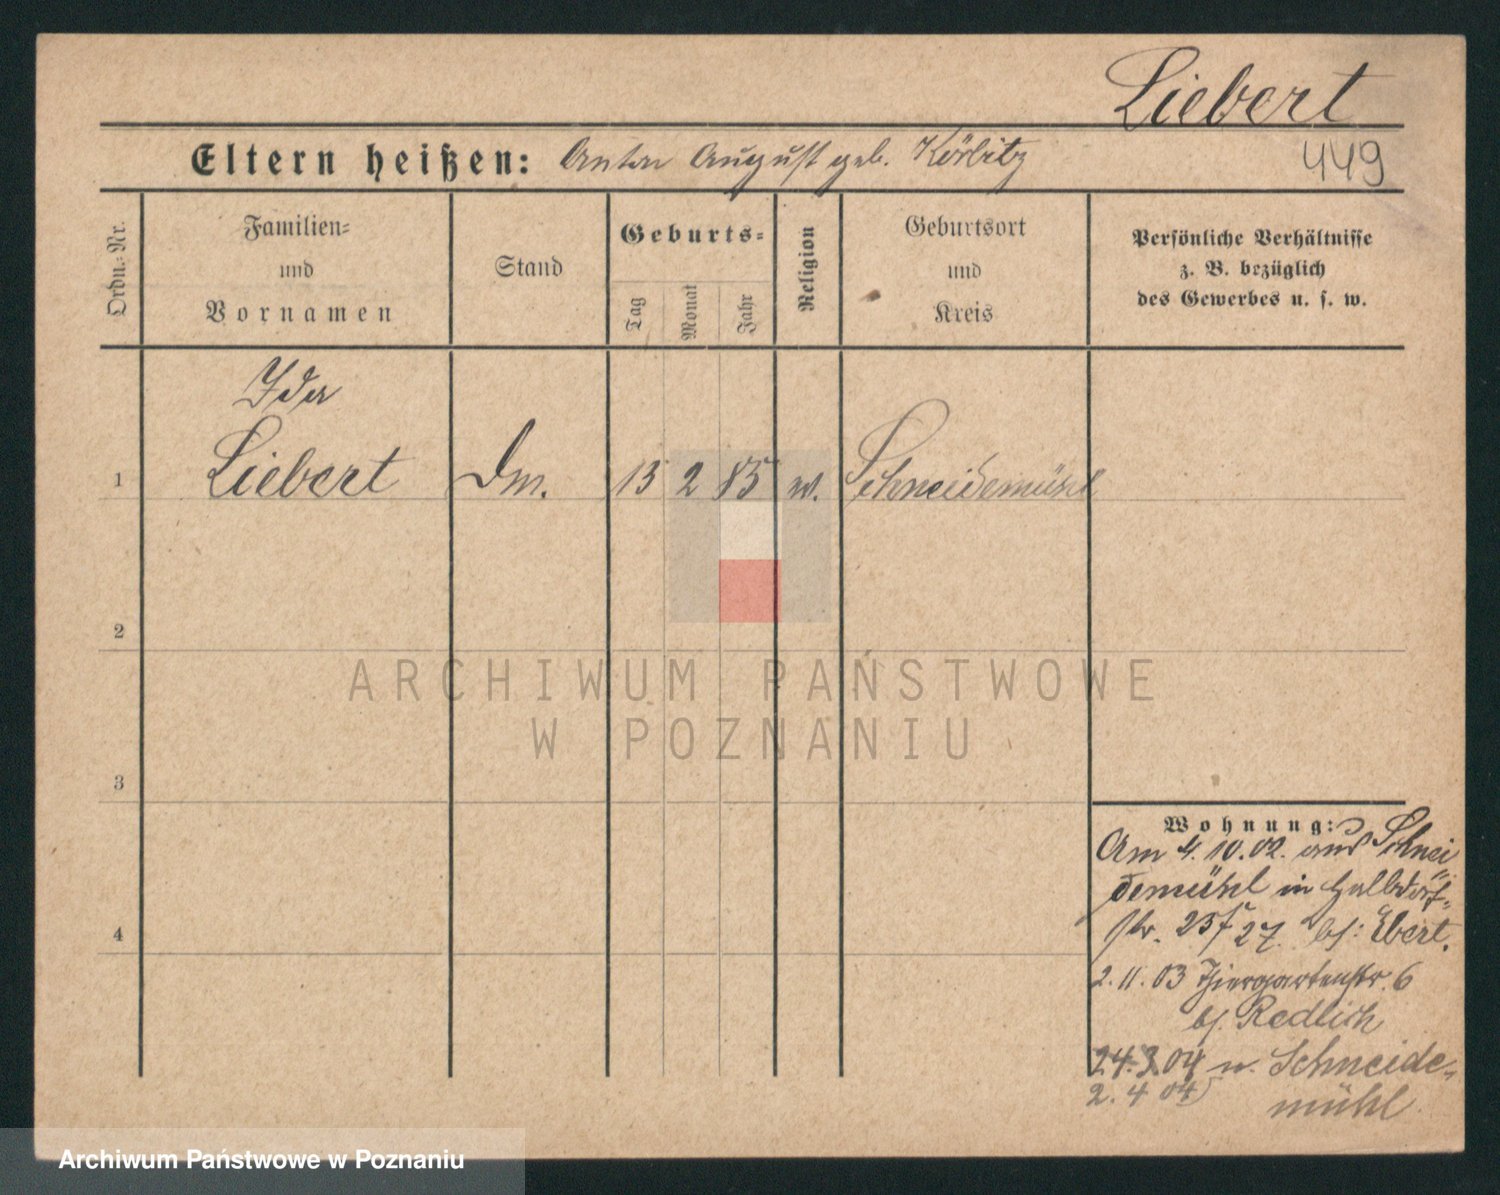 Liebert
Eltern heißen: Anton August geb. Körlitz
449
Ordn.-Nr.
Familien-
und
Vornamen
Stand
Geburts-
Tag
Monat
Jahr
Religion
Geburtsort
und
Kreis
Persönliche Verhältnisse
z. B. bezüglich
des Gewerbes u. s. w.
Ida
1 Liebert Dm. 13 2 85 Schneidemühl
2
ARCHIWUM PAŃSTWOWE
W POZNANIU
3
4
Wohnung:
Am 4.10.02. aus Schnei
demühl in Halbdorf-
str. 27. bei: Ebert.
2.11.03 Thiergartenstr. 6
bei Redlich
24.3.04 n. Schneide-
2.4 04 mühl
Archiwum Państwowe w Poznaniu